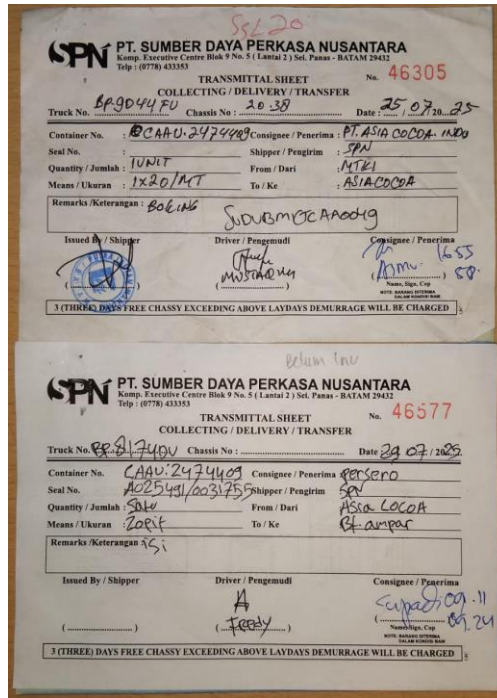 SSL 20
SPN PT. SUMBER DAYA PERKASA NUSANTARA
Komp. Executive Centre Blok 9 No. 5 ( Lantai 2 ) Sei. Panas - BATAM 29432
Telp : (0778) 433353
TRANSMITTAL SHEET No. 46305
COLLECTING / DELIVERY / TRANSFER
Truck No. BP.9044 FU Chassis No : 20.38 Date : 25 / 07 / 20 25
Container No. : CAAU.2474409 Consignee / Penerima : PT. ASIA COCOA. INDO
Seal No. : Shipper / Pengirim : SPN
Quantity / Jumlah : 1UNIT From / Dari : MTKI
Means / Ukuran : 1x20/MT To / Ke : ASIA COCOA
Remarks /Keterangan : BOKING
SUDUBMTCAA0049
Issued By / Shipper Driver / Pengemudi Consignee / Penerima
1655
58.
Name, Sign, Cap
NOTE: BARANG DITERIMA
DALAM KONDISI BAIK
3 (THREE) DAYS FREE CHASSY EXCEEDING ABOVE LAYDAYS DEMURRAGE WILL BE CHARGED
Belum Inv
SPN PT. SUMBER DAYA PERKASA NUSANTARA
Komp. Executive Centre Blok 9 No. 5 ( Lantai 2 ) Sei. Panas - BATAM 29432
Telp : (0778) 433353
TRANSMITTAL SHEET No. 46577
COLLECTING / DELIVERY / TRANSFER
Truck No. BP.8174DU Chassis No : Date 29 / 07 / 2025
Container No. : CAAU:2474409 Consignee / Penerima : Persero
Seal No. : A025491/0031755 Shipper / Pengirim : SPN
Quantity / Jumlah : Satu From / Dari : Asia COCOA
Means / Ukuran : 20Fit To / Ke : Bt. ampar
Remarks /Keterangan : isi
Issued By / Shipper Driver / Pengemudi Consignee / Penerima
Supadi 09.11
Freedy 09.24
Name, Sign, Cap
NOTE: BARANG DITERIMA
DALAM KONDISI BAIK
3 (THREE) DAYS FREE CHASSY EXCEEDING ABOVE LAYDAYS DEMURRAGE WILL BE CHARGED